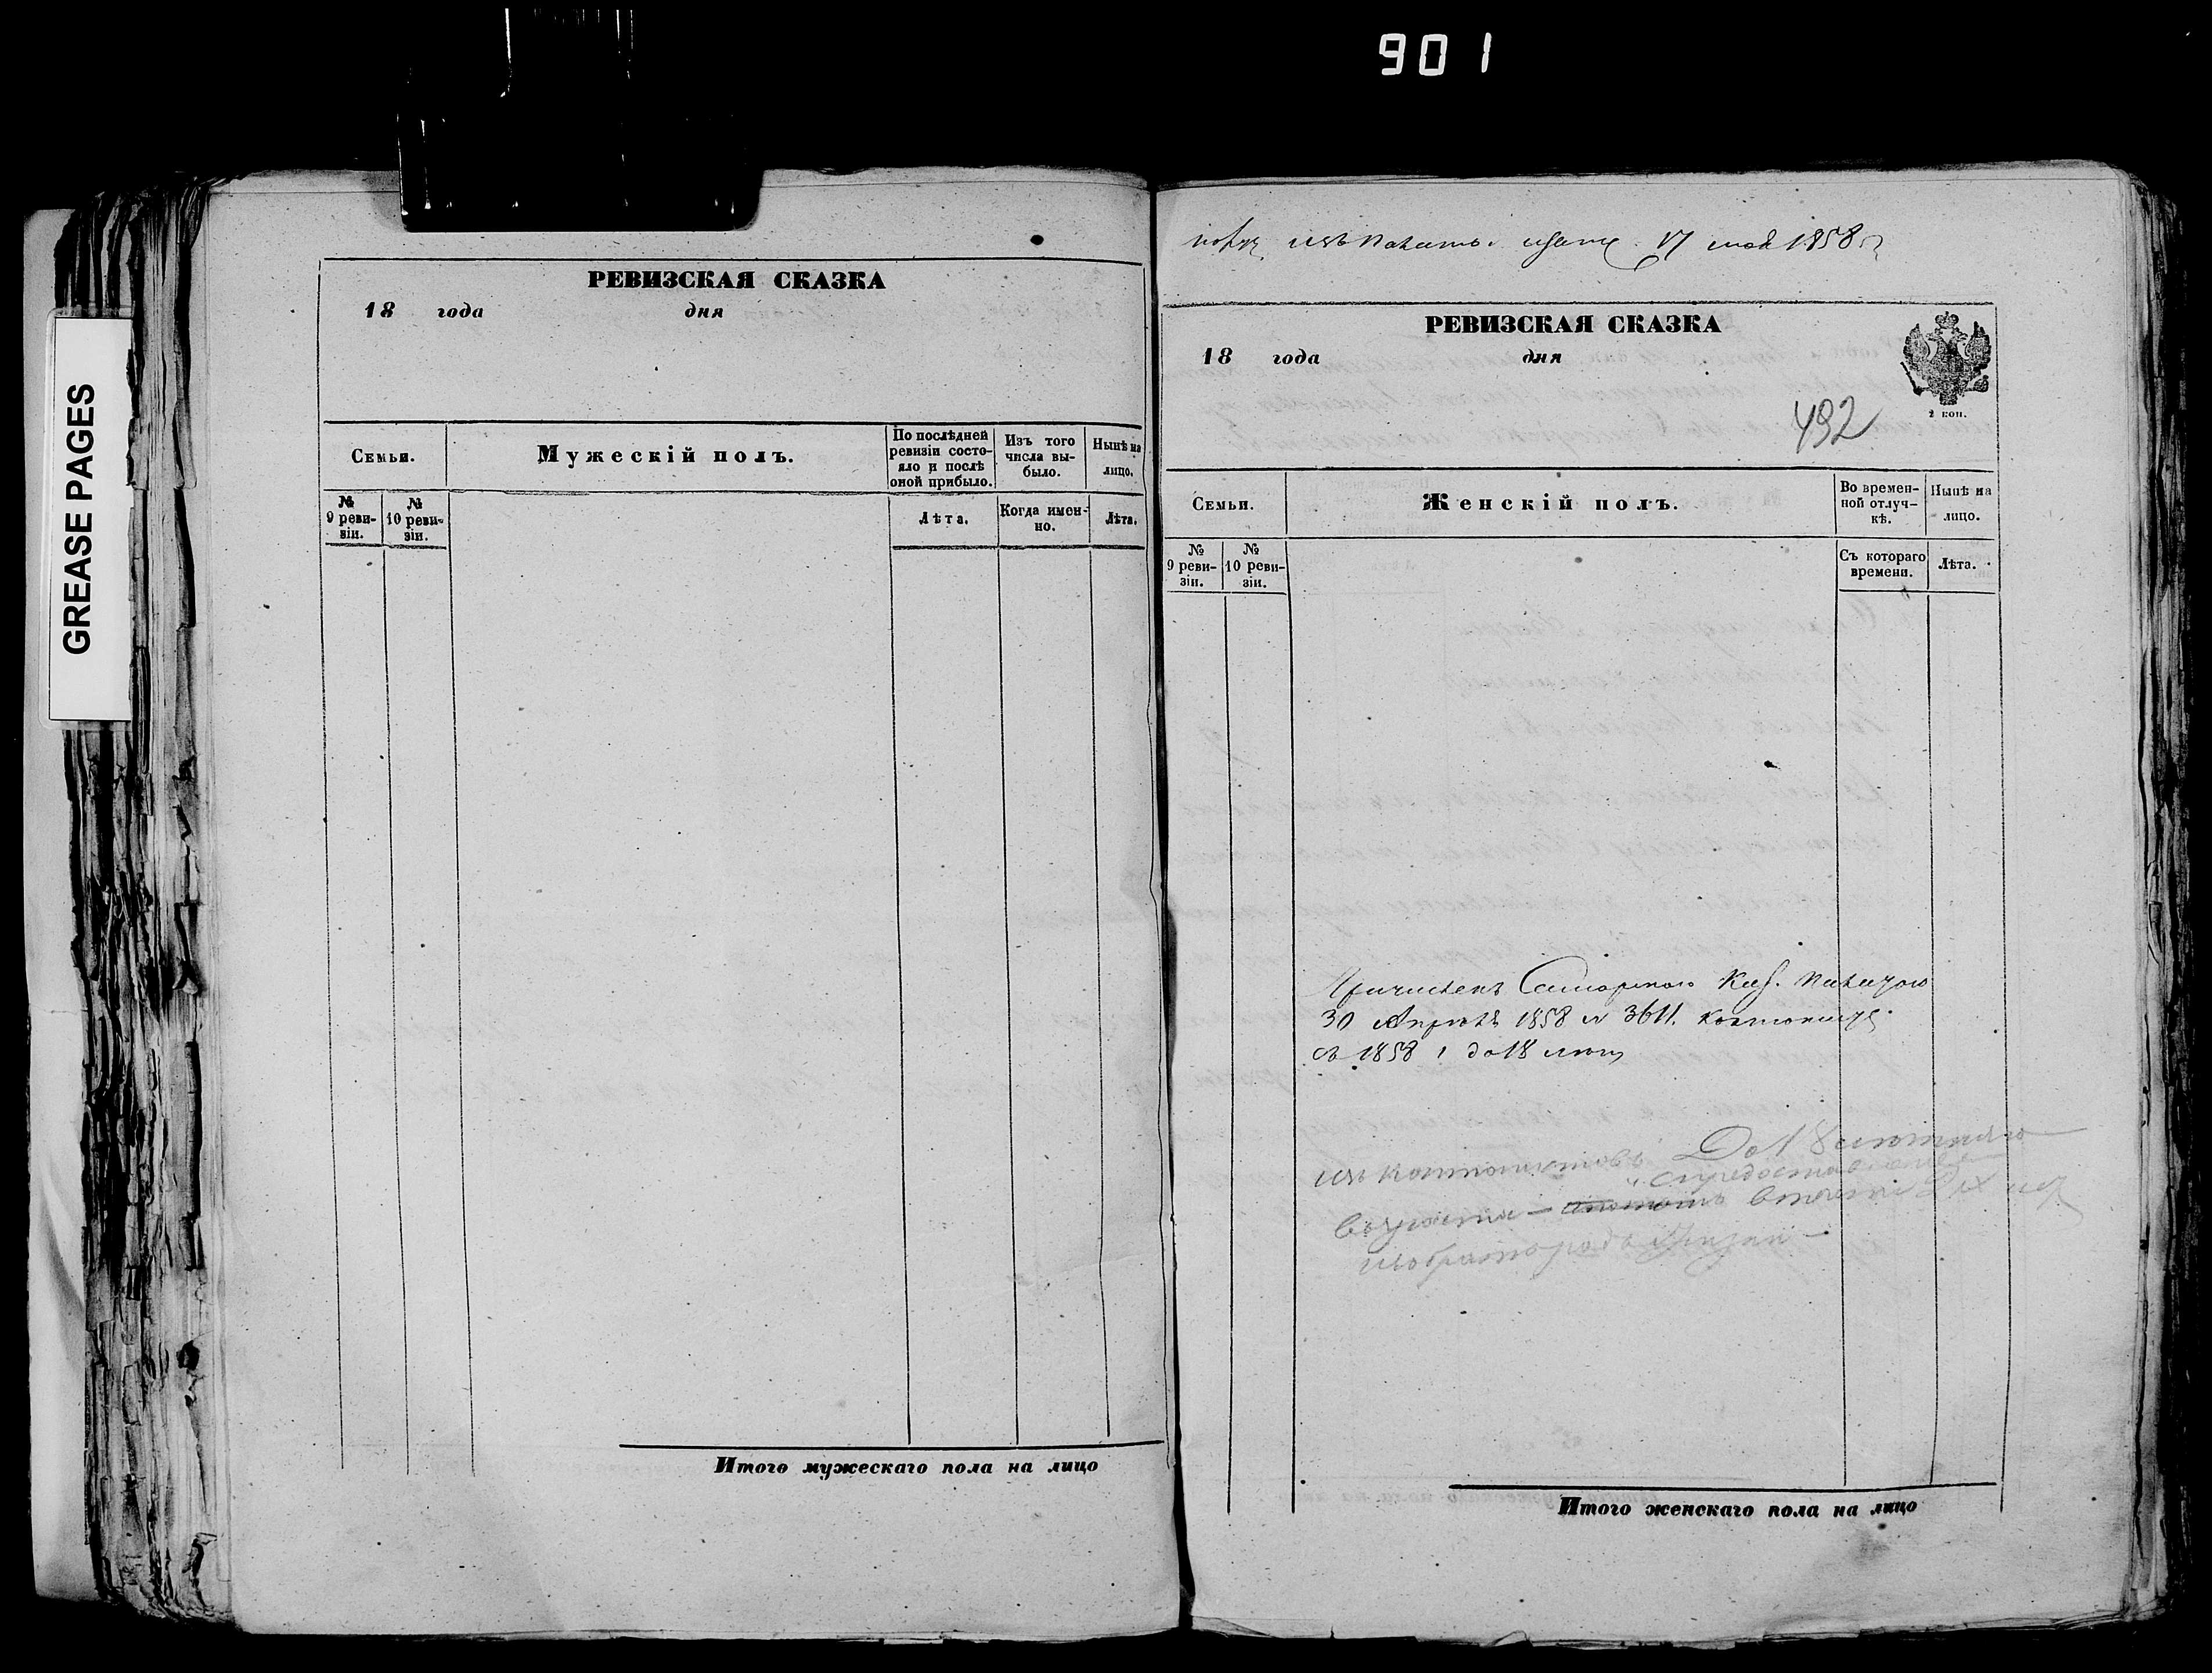 901
GREASE PAGES
РЕВИЗСКАЯ СКАЗКА
18 года дня
Семьи.
Мужескій полъ.
По послѣдней ревизіи состо-
яло и послѣ
оной прибыло.
Изъ того
числа вы-
было.
Нынѣ на
лицо.
№
9 реви-
зіи.
№
10 реви-
зіи.
Лѣта.
Когда имен-
но.
Лѣта.
Итого мужескаго пола на лицо
17 мая 1858
РЕВИЗСКАЯ СКАЗКА
18 года дня
2 коп.
492
Семьи.
Женскій полъ.
Во времен-
ной отлуч-
кѣ.
Нынѣ на
лицо.
№
9 реви-
зіи.
№
10 реви-
зіи.
Съ котораго
времени.
Лѣта.
Причисленъ Самарскою Каз. Палатою
30 Апрѣля 1858 № 3611.
съ 1858 до 18
До 18
изъ кантонистовъ
возраста —
избрать родъ жизни —
Итого женскаго пола на лицо